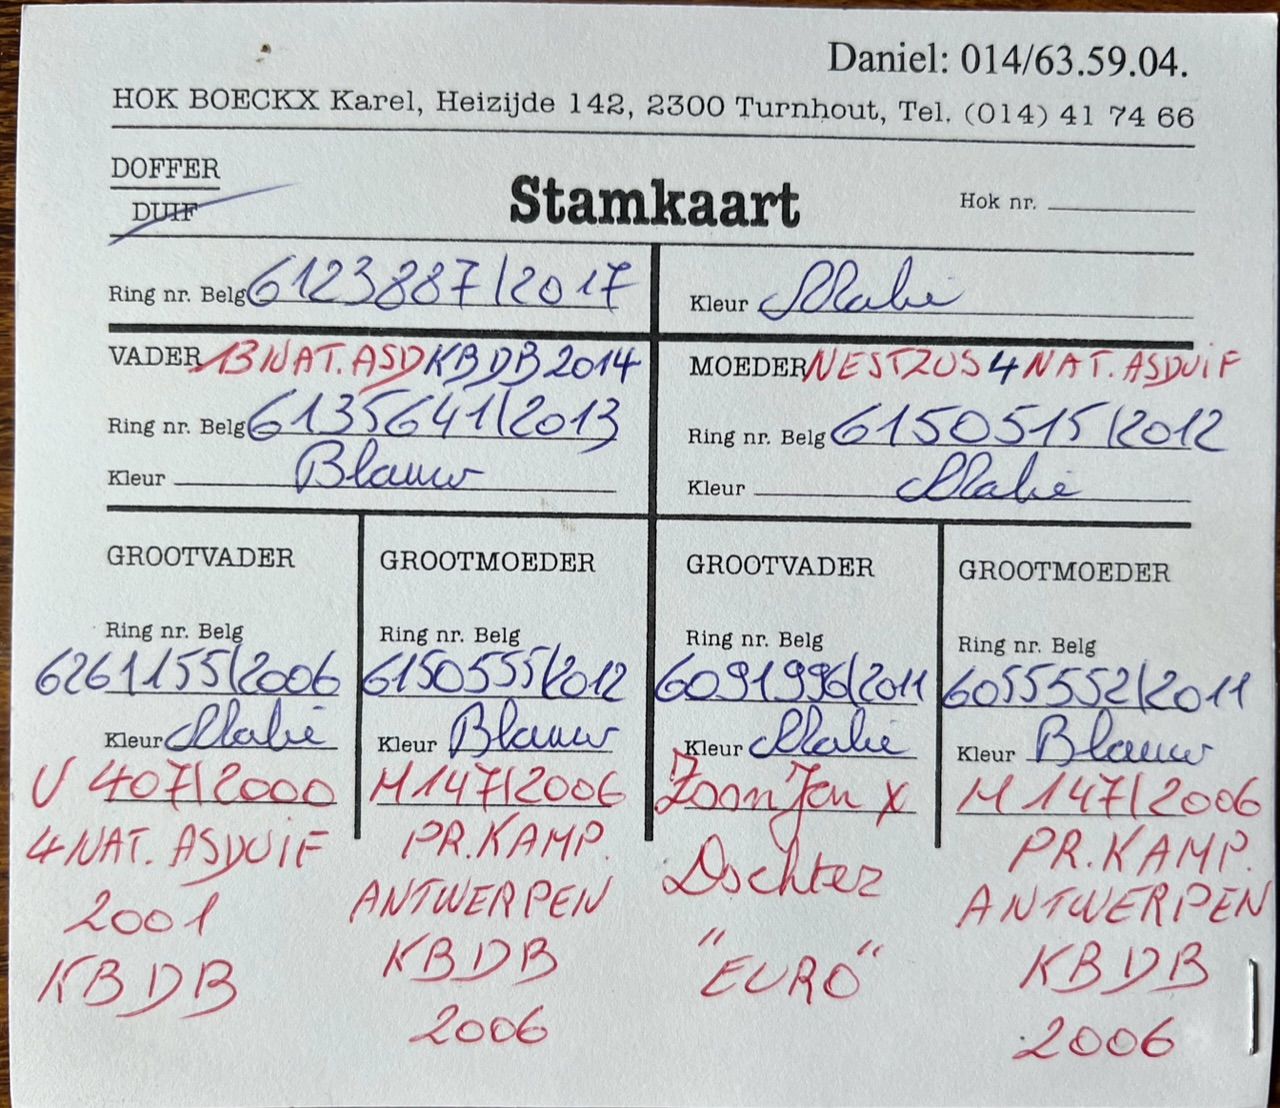 Daniel: 014/63.59.04.
HOK BOECKX Karel, Heizijde 142, 2300 Turnhout, Tel. (014) 41 74 66
DOFFER
DUIF
Stamkaart
Hok nr.
Ring nr. Belg 6123887/2017
Kleur
VADER 13 NAT. ASD KBDB 2014
Ring nr. Belg 6135641/2013
Kleur Blauw
MOEDER NESTZUS 4 NAT. ASDUIF
Ring nr. Belg 6150515/2012
Kleur
GROOTVADER
Ring nr. Belg
6261155/2006
Kleur
V 407/2000
4 NAT. ASDUIF
2001
KBDB
GROOTMOEDER
Ring nr. Belg
6150555/2012
Kleur Blauw
M 147/2006
PR. KAMP.
ANTWERPEN
KBDB
2006
GROOTVADER
Ring nr. Belg
6091996/2011
Kleur
Zoon Jan x
Dochter
"EURO"
GROOTMOEDER
Ring nr. Belg
6055552/2011
Kleur Blauw
M 147/2006
PR. KAMP.
ANTWERPEN
KBDB
2006